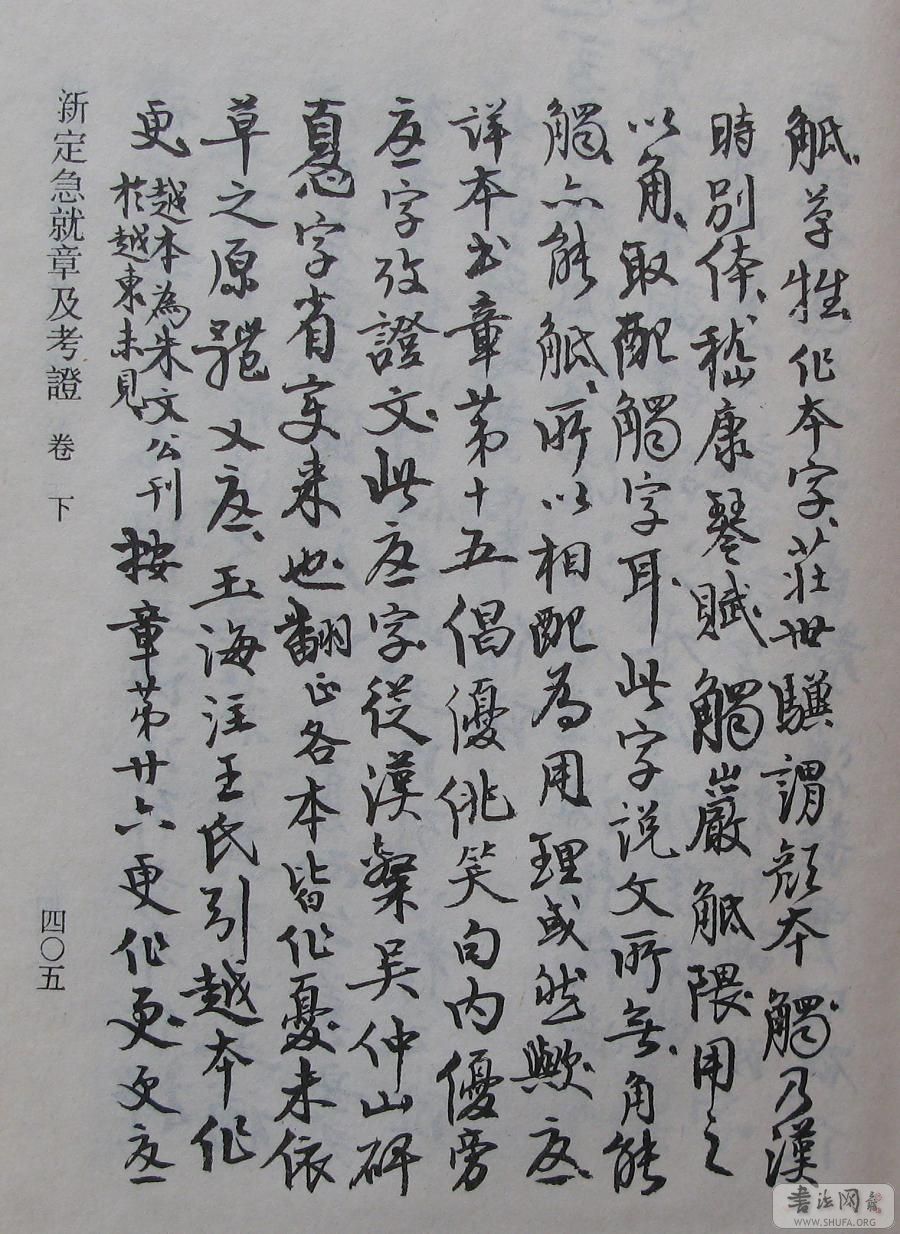 觝、莩牲、作本字、莊世驥謂顔本觸乃漢
時別体、嵇康琴賦、觸巖觝隈、用之
以角、取配觸字耳、此字説文所無、角能
觸、亦能觝、所以相配為用、理或然歟、
詳本书章苐十五倡優俳笑句内優旁
字攷證文、此字從漢粲吴仲山碑
憂字省変来也、翻正各本皆作憂、未依
草之原體、又、玉海注王氏引越本作
更越本為朱文公刊
於越東未見按章苐廿六更作更、更
新定急就章及考證 卷 下
四〇五
書法网
WWW.SHUFA.ORG